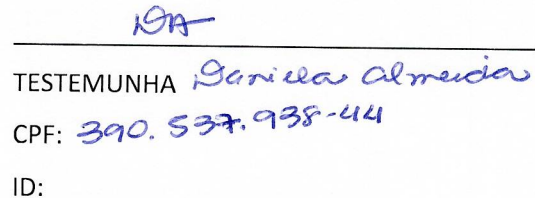 DA
TESTEMUNHA Daniela Almeida
CPF: 390.537.938-44
ID: